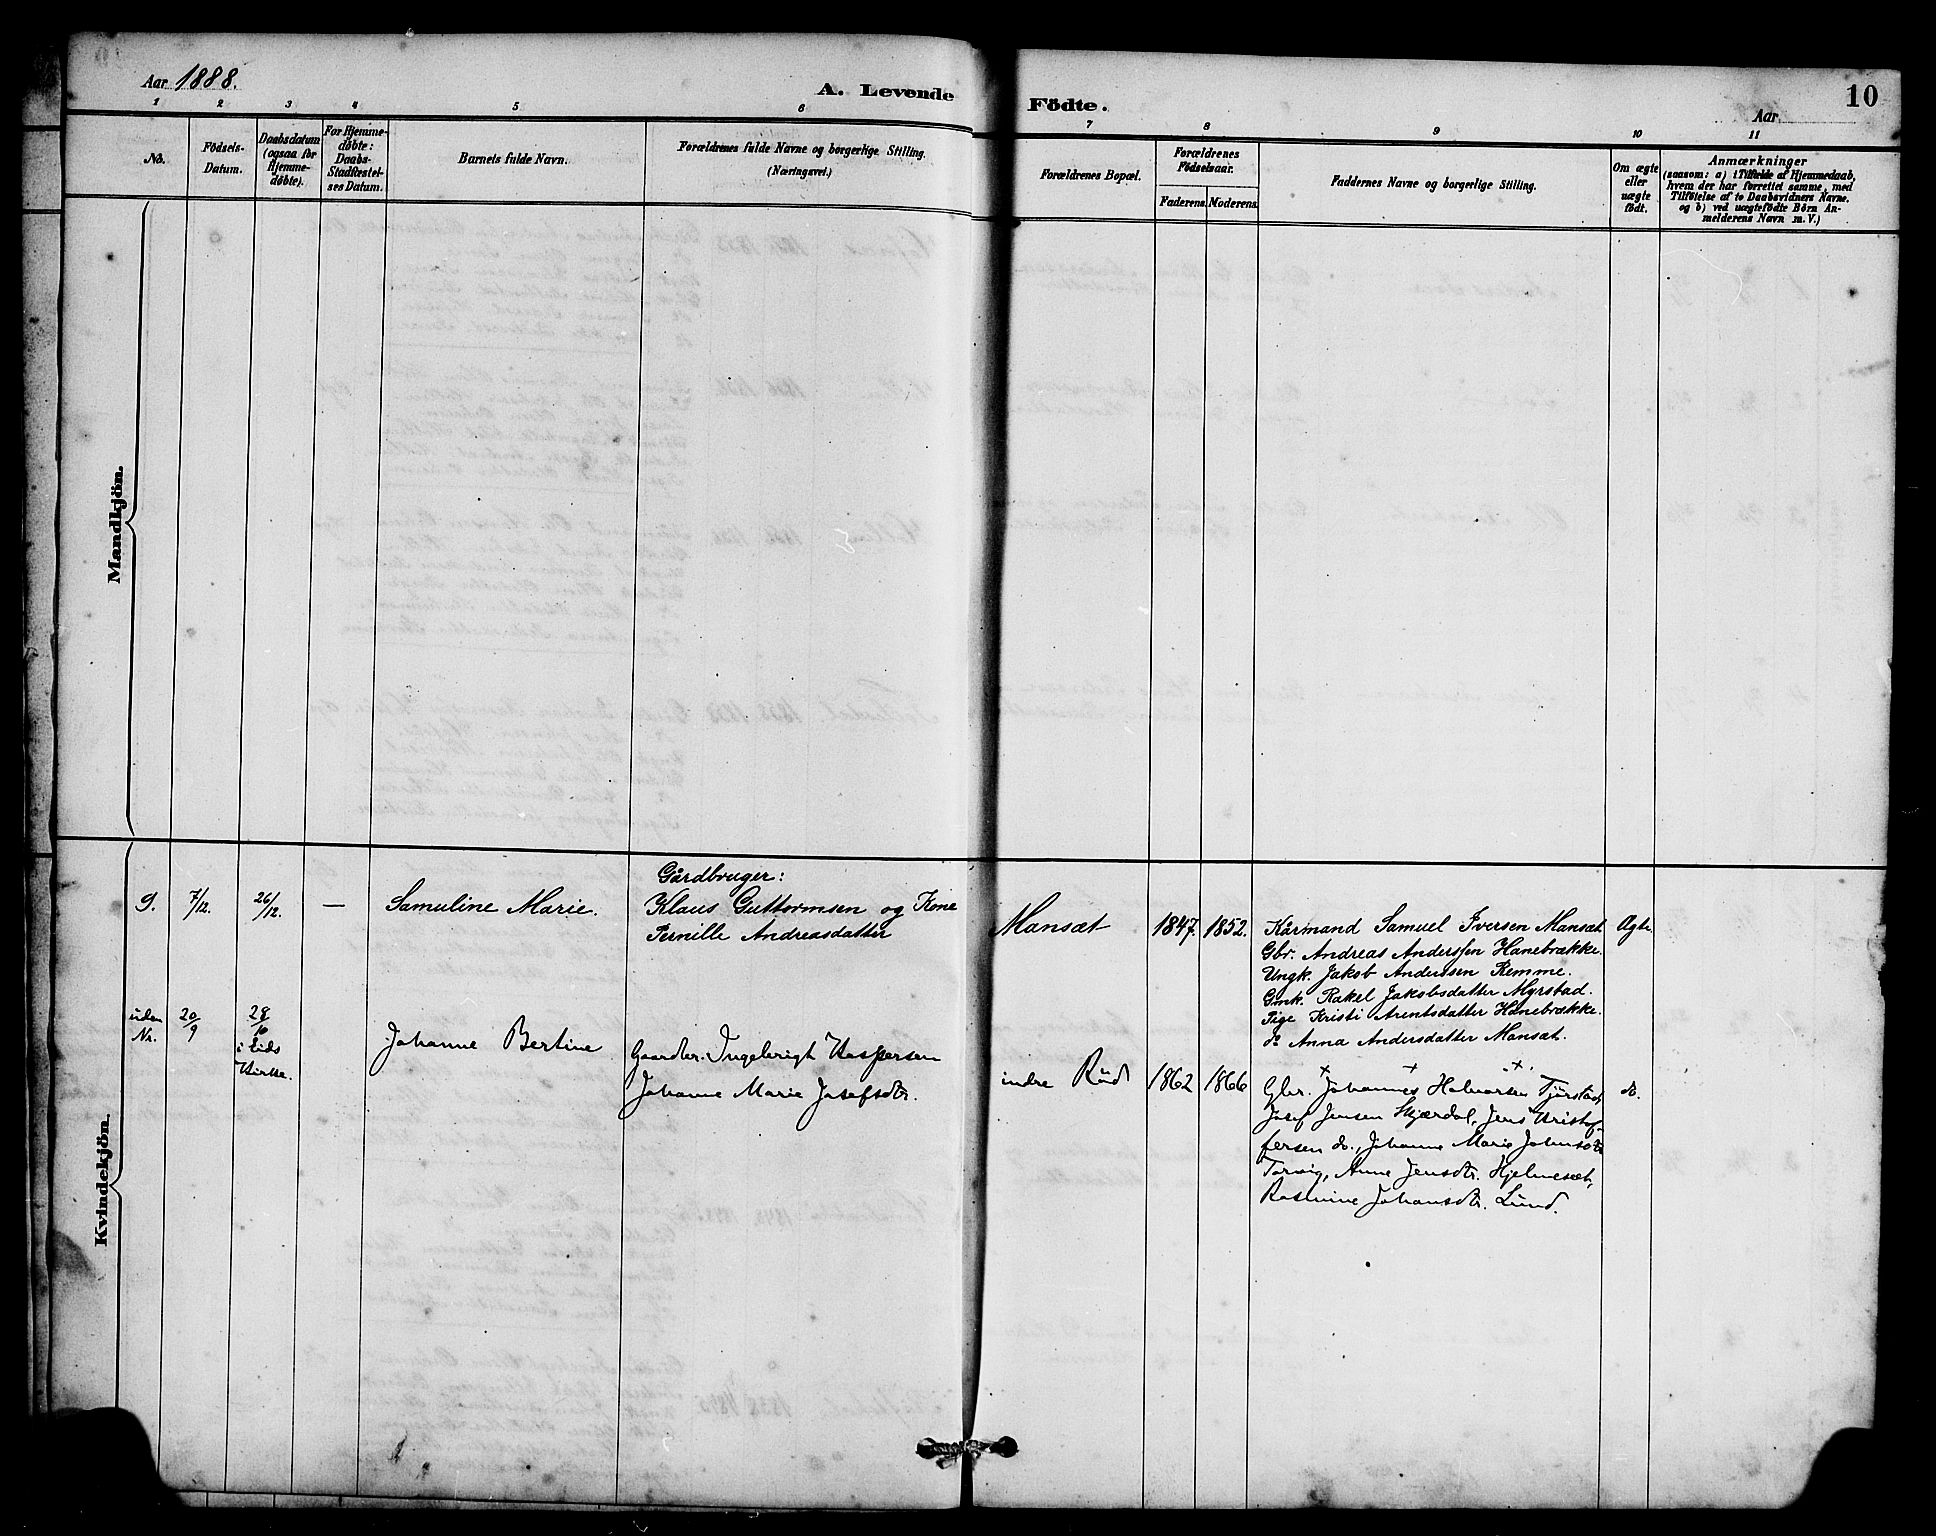 Aar 1888.
A. Levende
Födte.
Aar
10
1 2 3 4 5 6 7 8 9 10 11
No.
Födsels-
Datum.
Daabsdatum
(ogsaa for
Hjemme-
døbte).
For Hjemme-
døbte:
Daabs-
Stadfæstel-
ses Datum.
Barnets fulde Navn.
Forældrenes fulde Navne og borgerlige Stilling.
(Næringsvei.)
Forældrenes Bopæl.
Forældrenes
Födselsaar.
Faderens. Moderens.
Faddernes Navne og borgerlige Stilling.
Om ægte
eller
uægte
født.
Anmærkninger
(saasom: a) i Tilfælde af Hjemmedaab,
hvem der har forrettet samme, med
Tilföielse af to Daabsvidners Navne.
og b) ved uægtefödte Börn An-
melderens Navn m. V.)
Mandkjön.
Kvindekjön.
9. 7/12. 26/12. — Samuline Marie.
Gårdbruger:
Klaus Guttormsen og Kone
Pernille Andreasdatter
Mansæt 1847. 1852.
Kårmand Samuel Iversen Mansæt.
Gbr. Andreas Anderssen Hanebrække.
Ungk. Jakob Anderssen Remme.
Gmk. Rakel Jakobsdatter Myrstad.
Pige Kristi Arentsdatter Hanebrække.
do Anna Andersdatter Mansæt.
Ægte.
uden
Nr.
20/9
28/10
i Eids
Kirke.
Johanne Bertine
Gaardbr. Ingebrigt Kaspersen
Johanne Marie Josefsdtr.
indre Rüd 1862 1866
Gbr. Johannes Halvorsen Tjørstad,
Josef Jensen Skjærdal, Jens Kristof-
fersen do., Johanne Marie Johnsdtr.
Torvig, Anne Jensdtr. Hjelmesæt,
Rasmine Johansdtr. Lünd.
do.